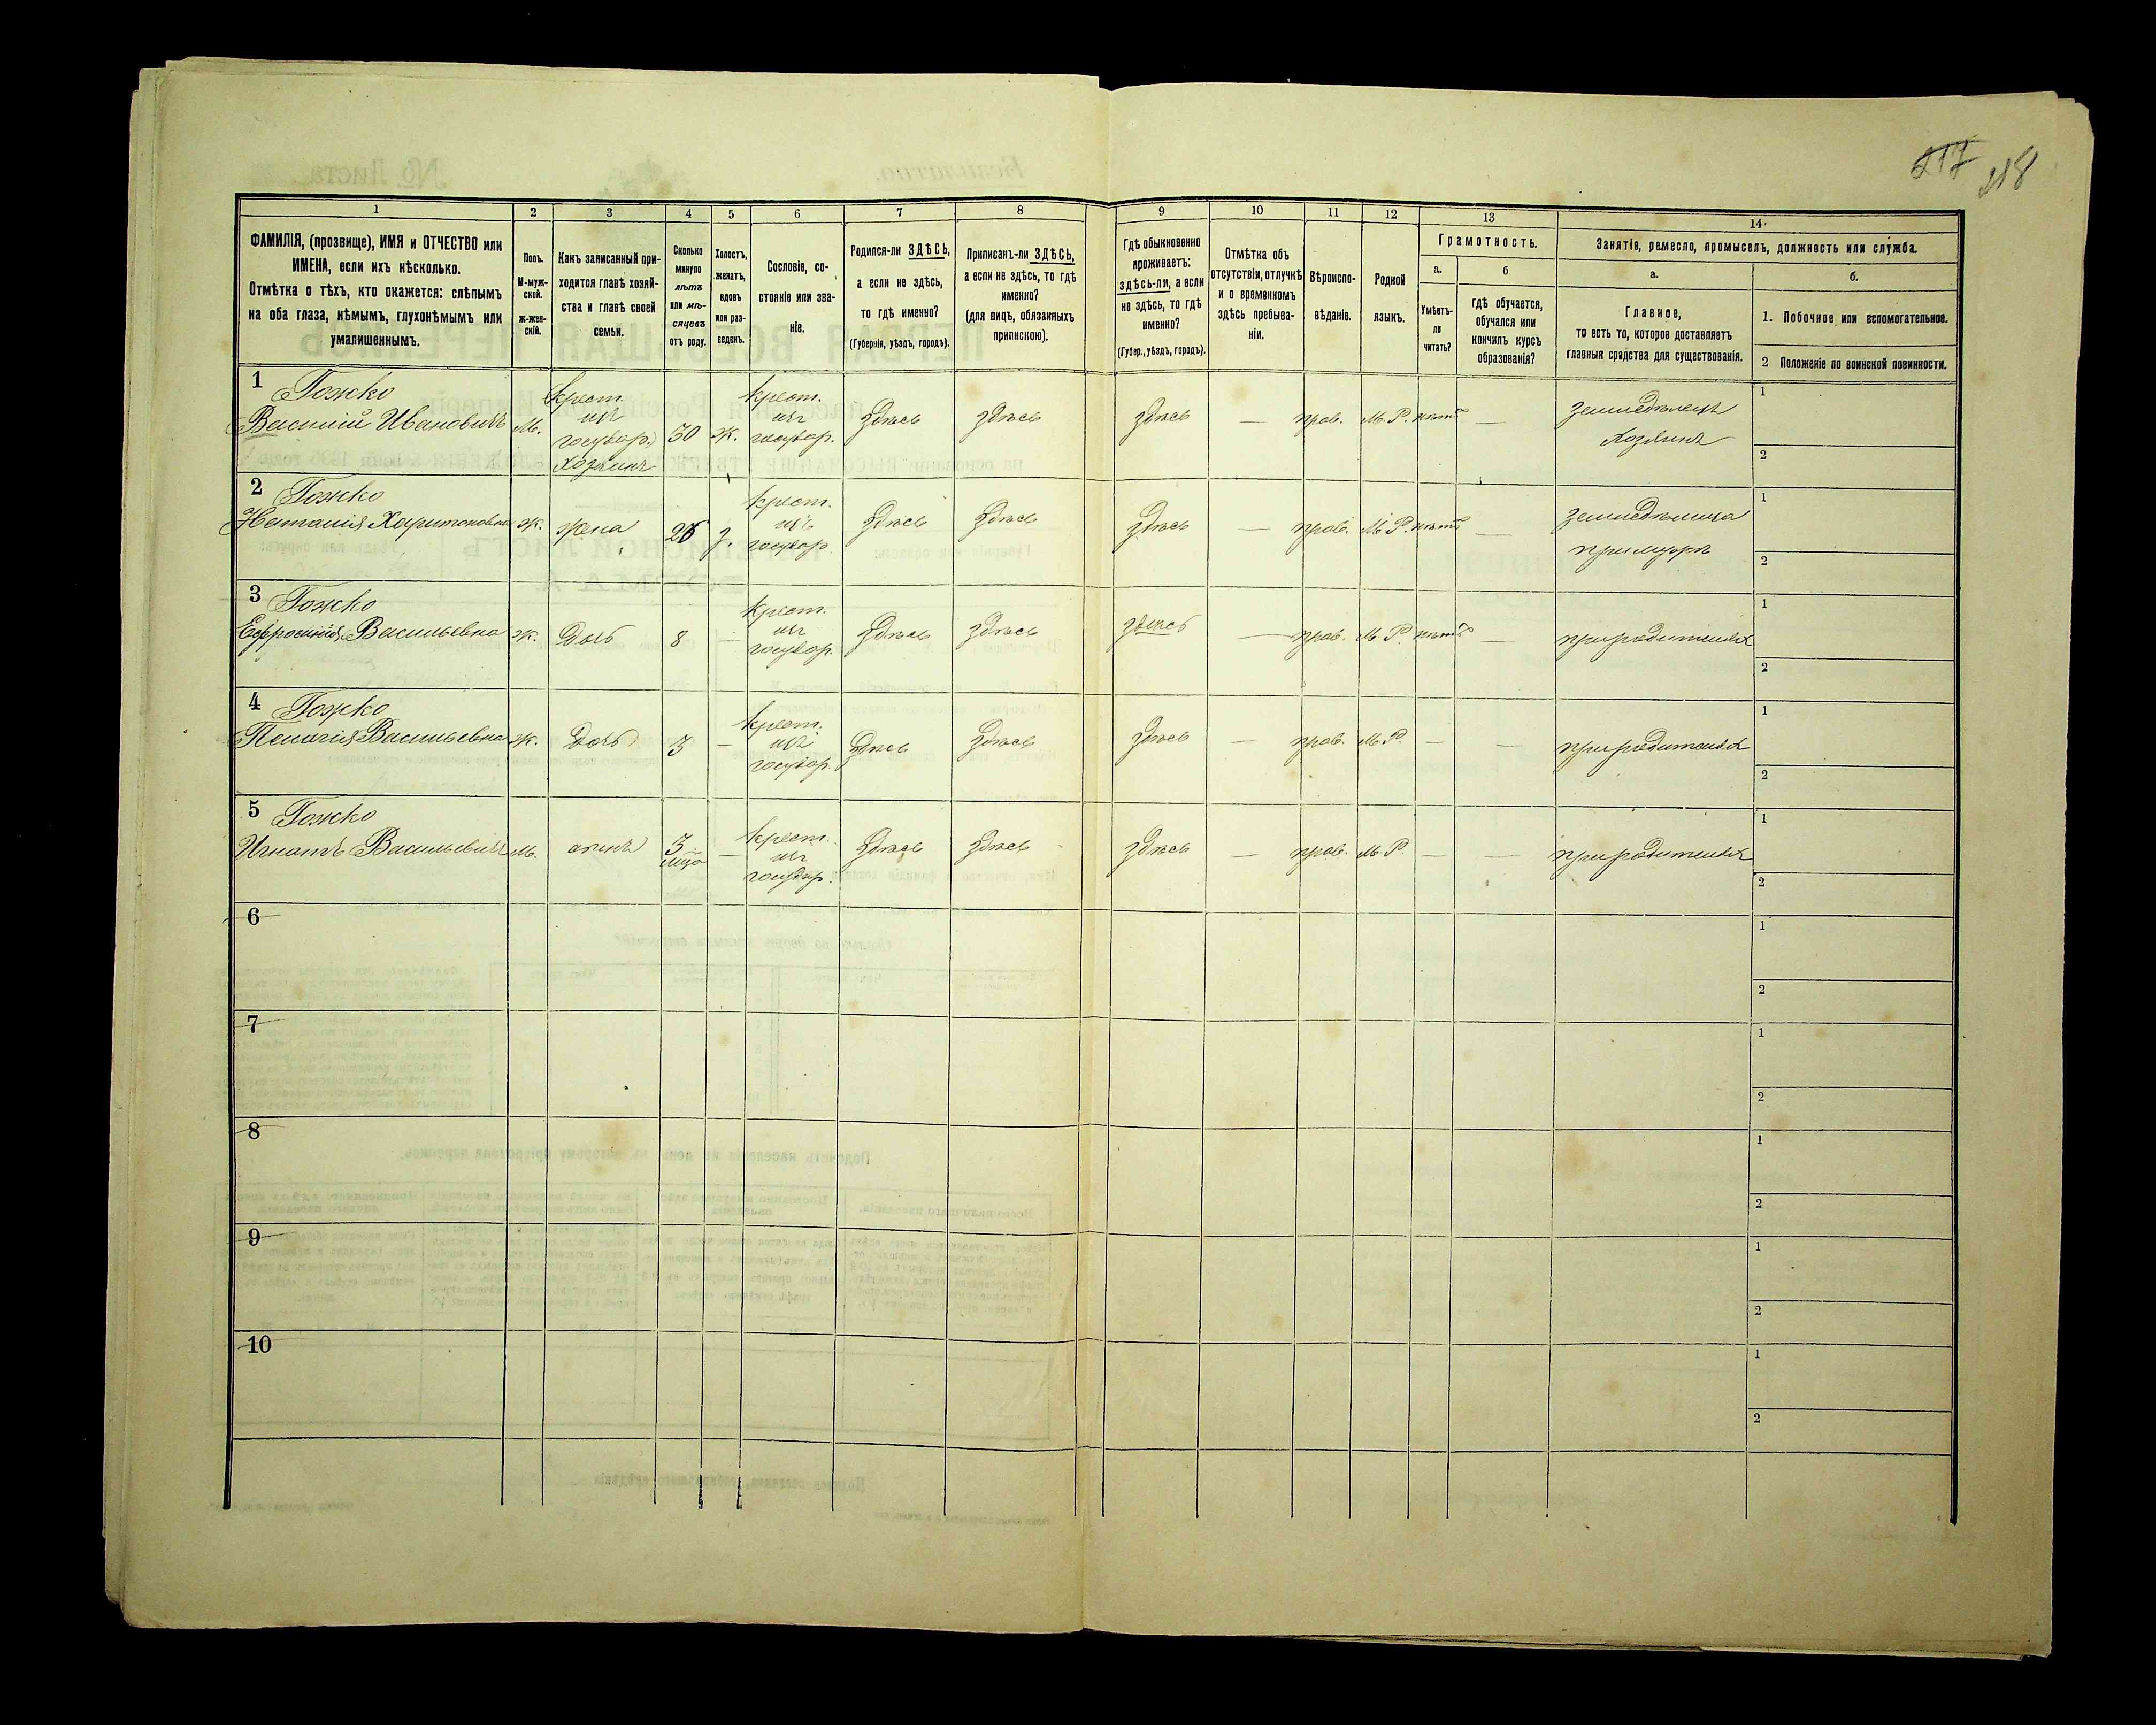 217 218
1 2 3 4 5 6 7 8 9 10 11 12 13 14.
ФАМИЛІЯ, (прозвище), ИМЯ и ОТЧЕСТВО или
ИМЕНА, если ихъ нѣсколько.
Отмѣтка о тѣхъ, кто окажется: слѣпымъ
на оба глаза, нѣмымъ, глухонѣмымъ или
умалишеннымъ.
Полъ.
М-муж-
ской.
ж-жен-
скій.
Какъ записанный при-
ходится главѣ хозяй-
ства и главѣ своей
семьи.
Сколько
минуло
лѣтъ
или мѣ-
сяцевъ
отъ роду.
Холостъ,
женатъ,
вдовъ
или раз-
веденъ.
Сословіе, со-
стояніе или зва-
ніе.
Родился-ли ЗДѢСЬ,
а если не здѣсь,
то гдѣ именно?
(Губернія, уѣздъ, городъ).
Приписанъ-ли ЗДѢСЬ,
а если не здѣсь, то гдѣ
именно?
(для лицъ, обязанныхъ
припискою).
Гдѣ обыкновенно
проживаетъ:
здѣсь-ли, а если
не здѣсь, то гдѣ
именно?
(Губер., уѣздъ, городъ).
Отмѣтка объ
отсутствіи, отлучкѣ
и о временномъ
здѣсь пребыва-
ніи.
Вѣроиспо-
вѣданіе.
Родной
языкъ.
Грамотность.
а.
Умѣетъ-
ли
читать?
б.
гдѣ обучается,
обучался или
кончилъ курсъ
образованія?
Занятіе, ремесло, промыселъ, должность или служба.
а.
Главное,
то есть то, которое доставляетъ
главныя средства для существованія.
б.
1. Побочное или вспомогательное.
2 Положеніе по воинской повинности.
1 Гожко
Василій Ивановичъ
м.
Крест.
изъ
государ.
хозяинъ
30
ж.
крест.
изъ
государ.
здѣсь здѣсь здѣсь — прав. М. Р. нѣтъ —
земледѣлецъ
хозяинъ
1
2
2 Гожко
Наталія Харитоновна
ж. жена 26 з.
крест.
изъ
государ.
здѣсь здѣсь здѣсь — прав. М. Р. нѣтъ —
земледѣлица
при мужѣ
1
2
3 Гожко
Ефросинія Васильевна
ж. дочь 8 —
крест.
изъ
государ.
здѣсь здѣсь здѣсь — прав. М. Р. нѣтъ —
при родителях
1
2
4 Гожко
Пелагія Васильевна
ж. дочь 3 —
крест.
изъ
государ.
здѣсь здѣсь здѣсь — прав. М. Р. — —
при родителях
1
2
5 Гожко
Игнатъ Васильевичъ
м. 3 —
крест.
изъ
государ.
здѣсь здѣсь здѣсь — прав. М. Р. — —
при родителях
1
2
6
1
2
7
1
2
8
1
2
9
1
2
10
1
2